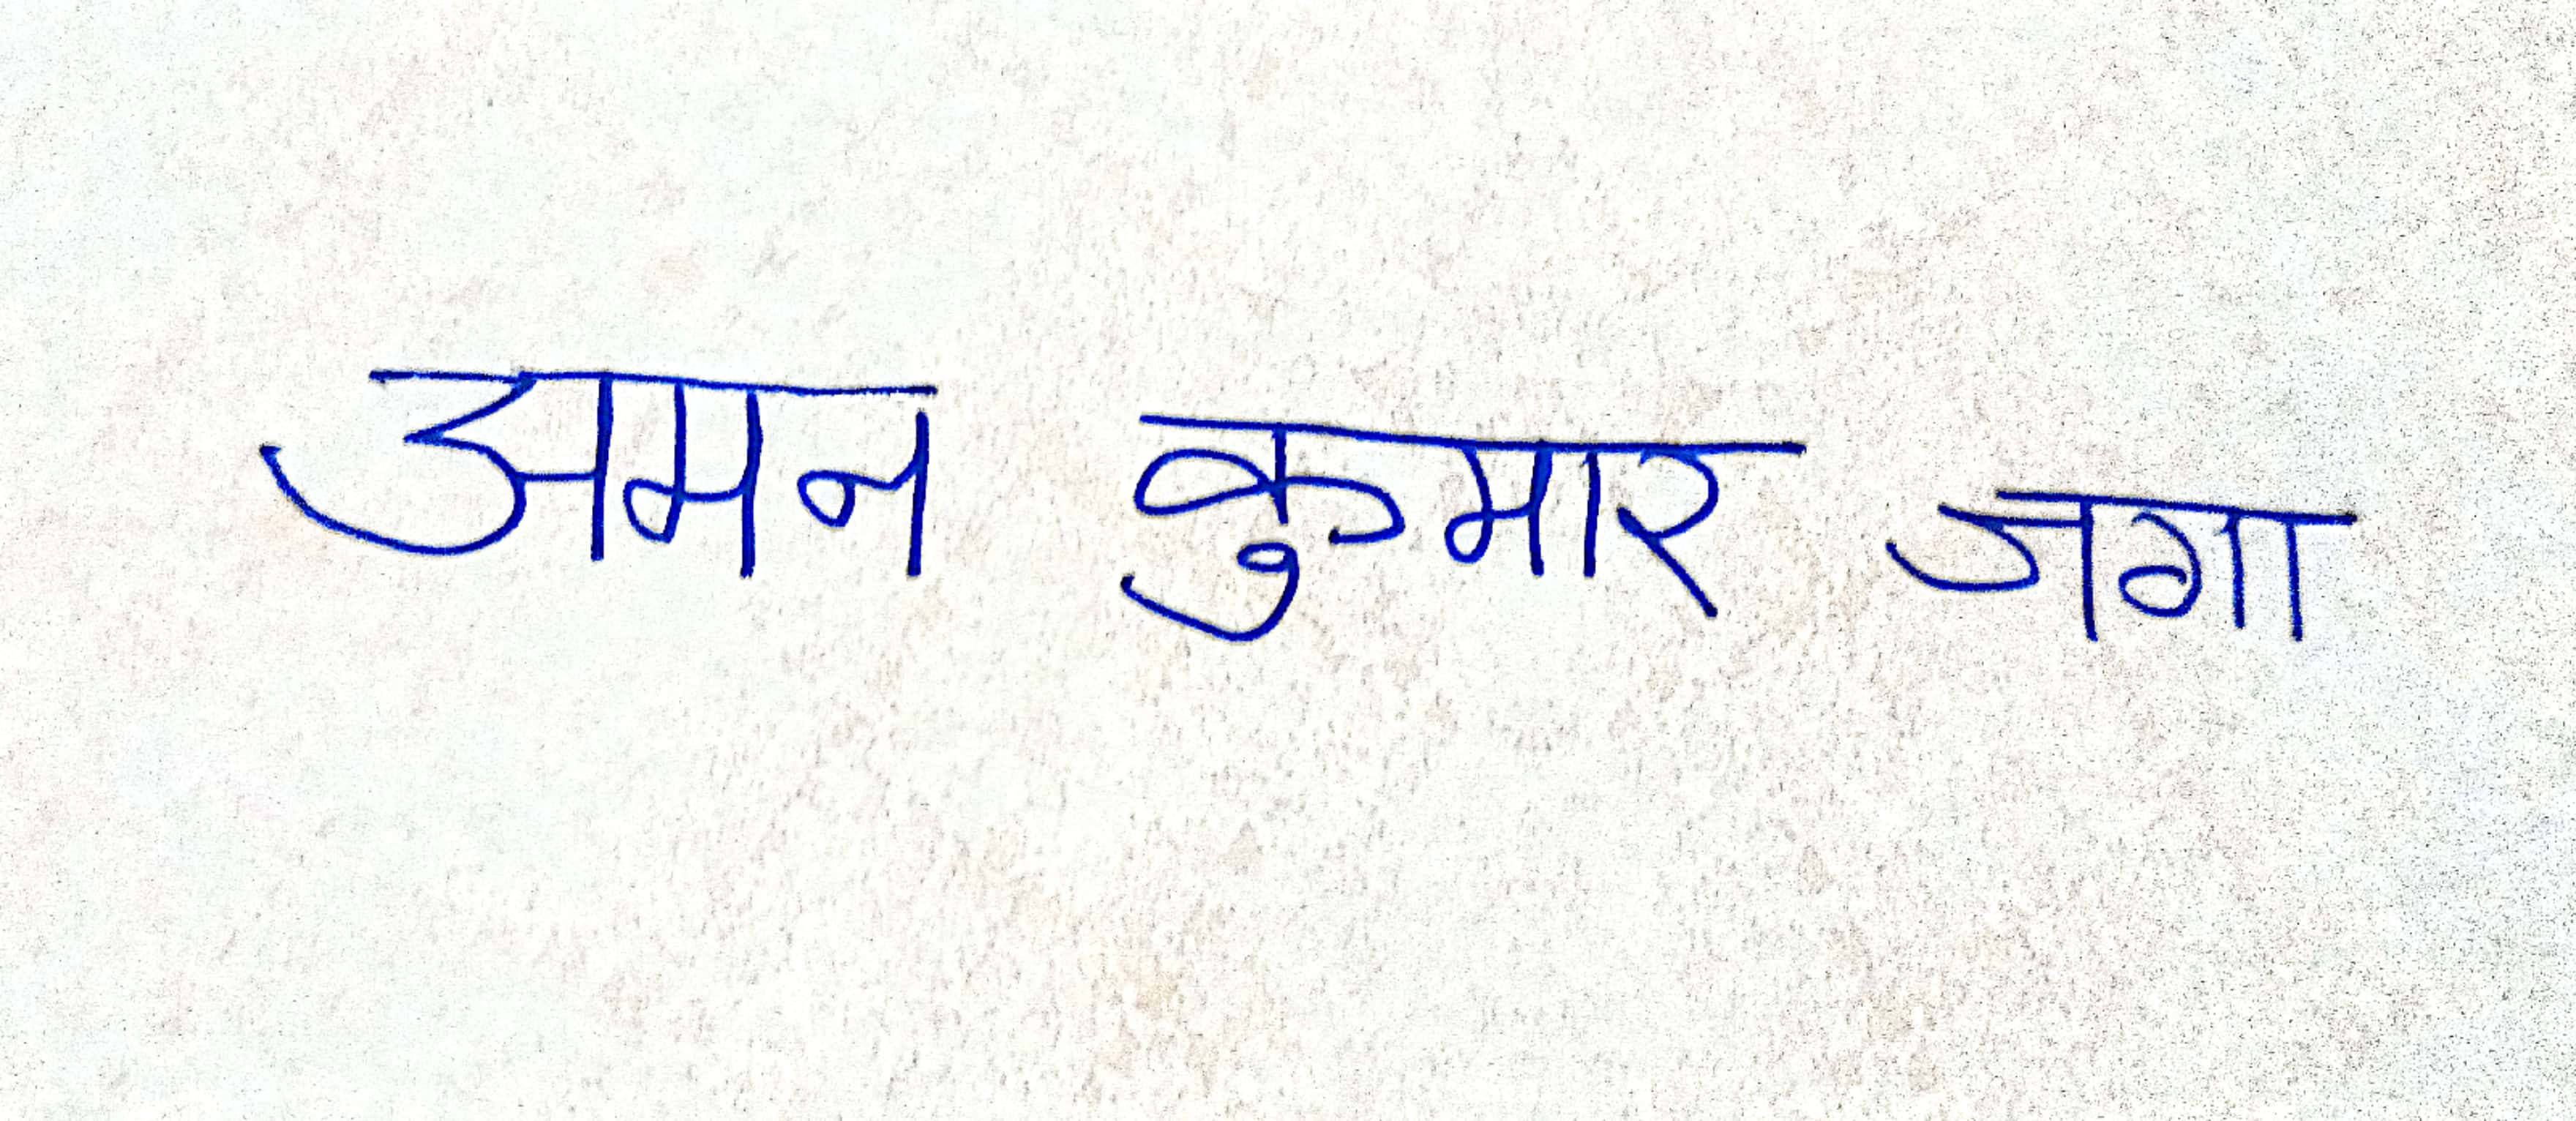 अमन कुमार जगा